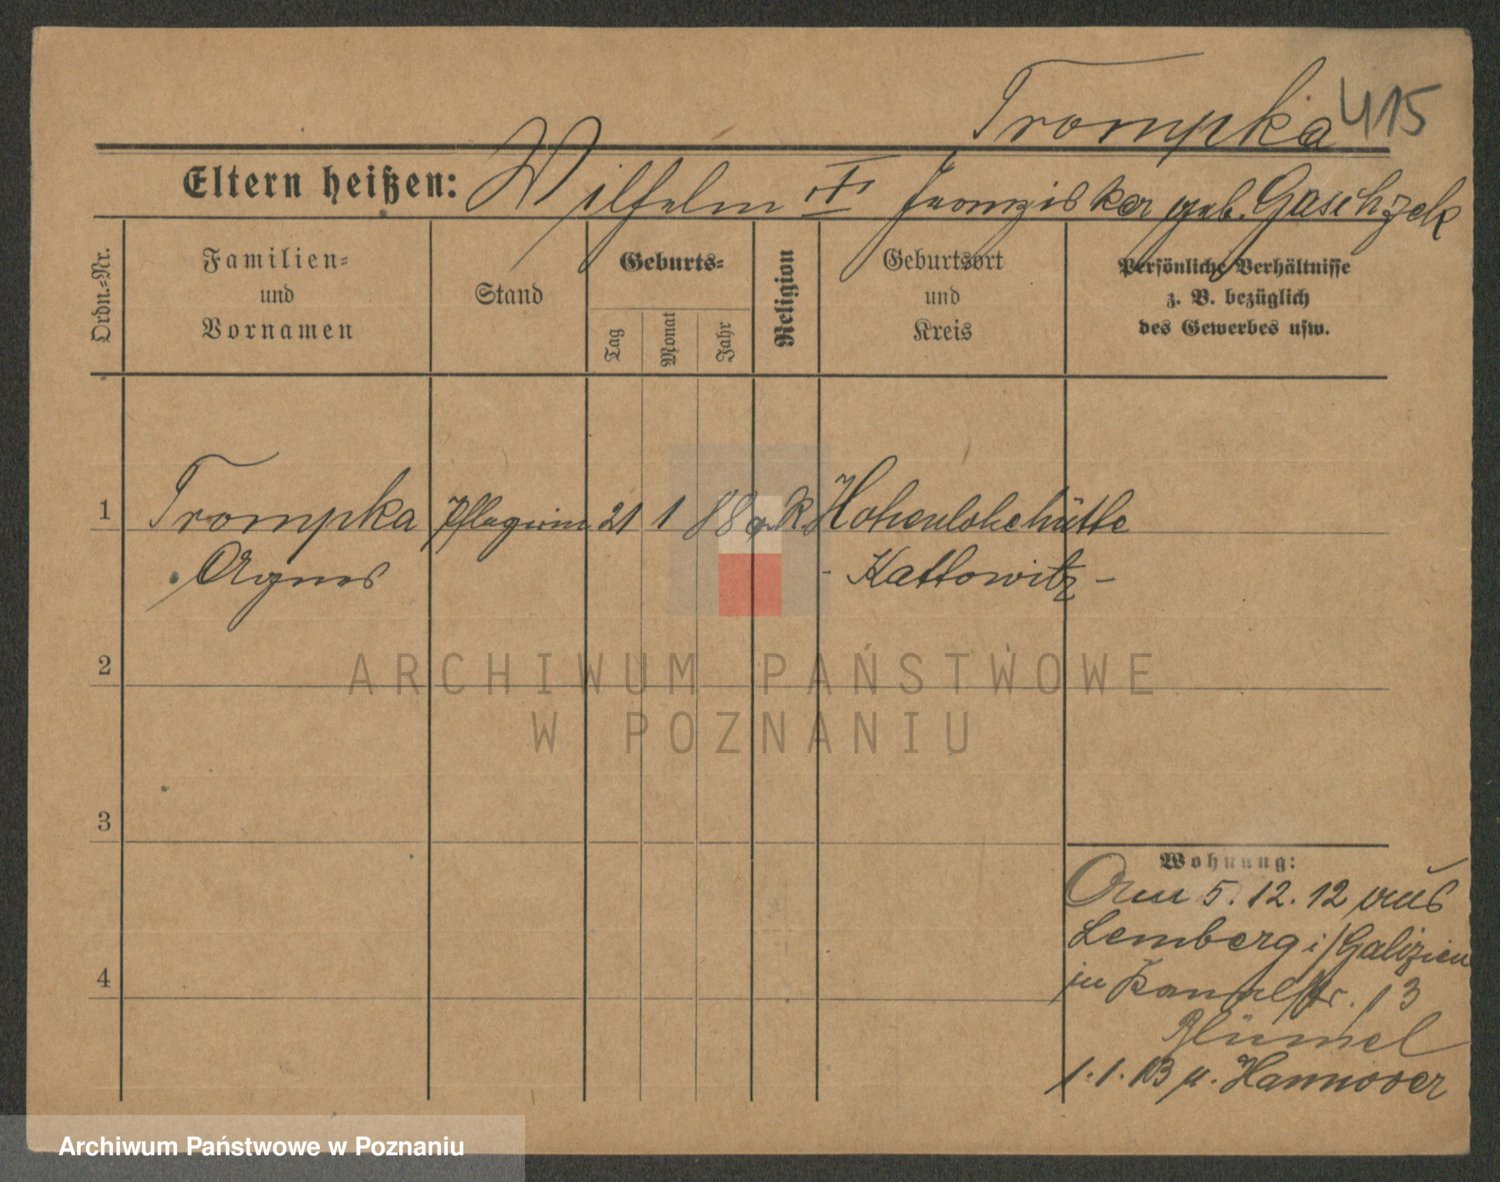 Trompka 415
Eltern heißen: Wilhelm + Franziska geb. Gaschzek
Ordn.-Nr.
Familien-
und
Vornamen
Stand
Geburts-
Tag
Monat
Jahr
Religion
Geburtsort
und
Kreis
Persönliche Verhältnisse
z. B. bezüglich
des Gewerbes usw.
1 Trompka Pflegerin 21 1 88 R. Hohenlohehütte
Agnes - Kattowitz -
2
3
4
Wohnung:
Am 5. 12. 12 aus
Lemberg i/Galizien
in Kanalstr. 13
Blümel
1. 1. 13 n. Hannover
ARCHIWUM PAŃSTWOWE
W POZNANIU
Archiwum Państwowe w Poznaniu